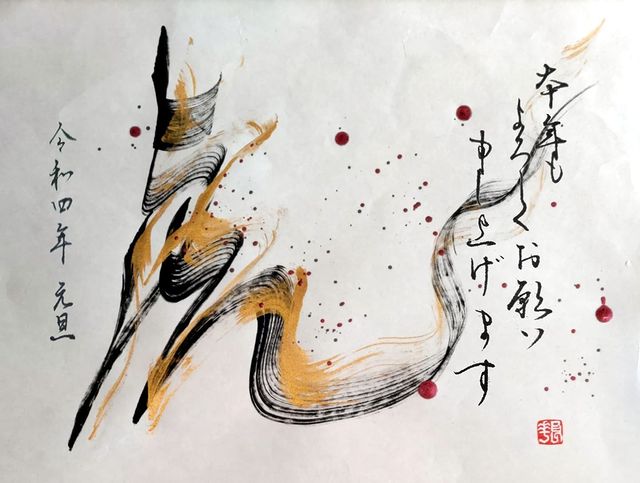 本年も
よろしくお願い
申し上げます
虎
令和四年 元旦